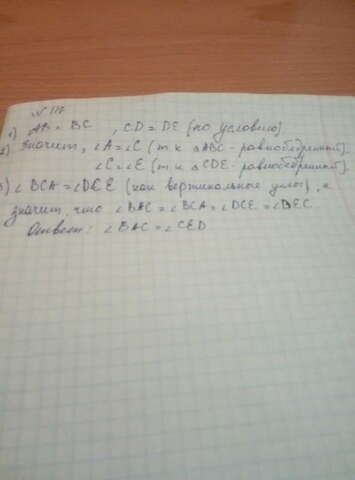 N 117
1) AB = BC, CD = DE (по условию)
2) Значит, ∠A = ∠C (т к ΔABC - равнобедренный),
∠C = ∠E (т к ΔCDE - равнобедренный).
3) ∠BCA = ∠DCE (как вертикальные углы), а
значит, что ∠BAC = ∠BCA = ∠DCE = ∠DEC
Ответ: ∠BAC = ∠CED